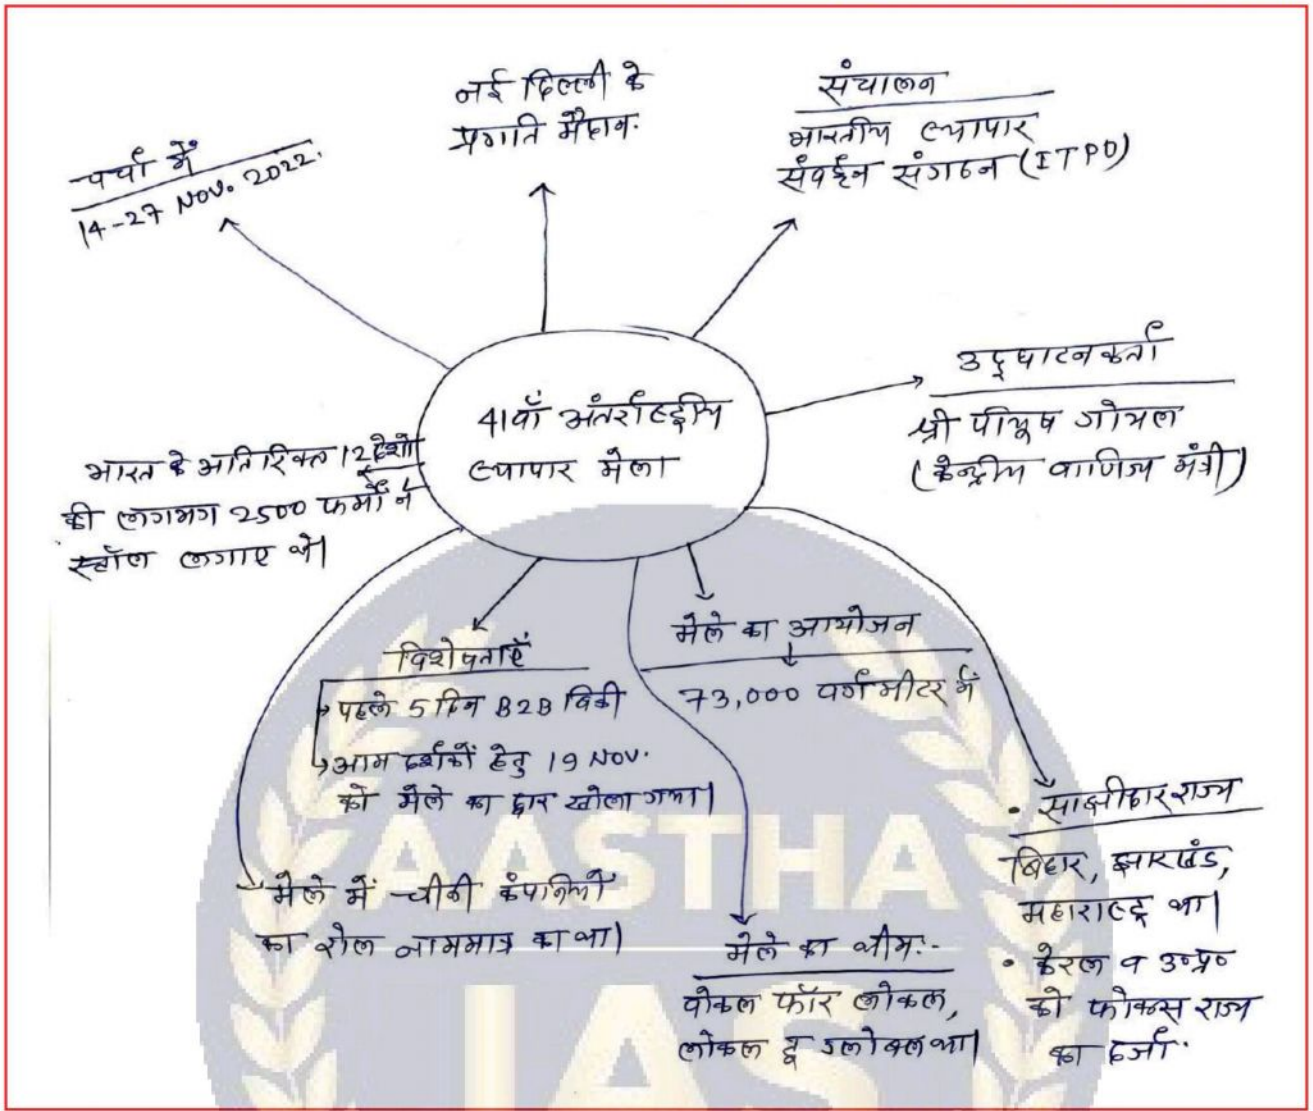 चर्चा में
14-27 Nov. 2022.
नई दिल्ली के
प्रगति मैदान.
संचालन
भारतीय व्यापार
संवर्द्धन संगठन (ITPO)
उद्घाटनकर्ता
श्री पीयूष गोयल
(केन्द्रीय वाणिज्य मंत्री)
41वाँ अंतर्राष्ट्रीय
व्यापार मेला
भारत के अतिरिक्त 12 देशों
की लगभग 2500 फर्मों ने
स्टॉल लगाए थे।
विशेषताएँ
पहले 5 दिन B2B बिक्री
आम दर्शकों हेतु 19 Nov.
को मेले का द्वार खोला गया।
मेले का आयोजन
73,000 वर्ग मीटर में
मेले में चीनी कंपनियों
का रोल नाममात्र का था।
मेले का थीम:-
वोकल फॉर लोकल,
लोकल टू ग्लोबल था।
• साझीदार राज्य
बिहार, झारखंड,
महाराष्ट्र था।
• केरल व उ०प्र०
को फोकस राज्य
का दर्जा.
AASTHA
IAS